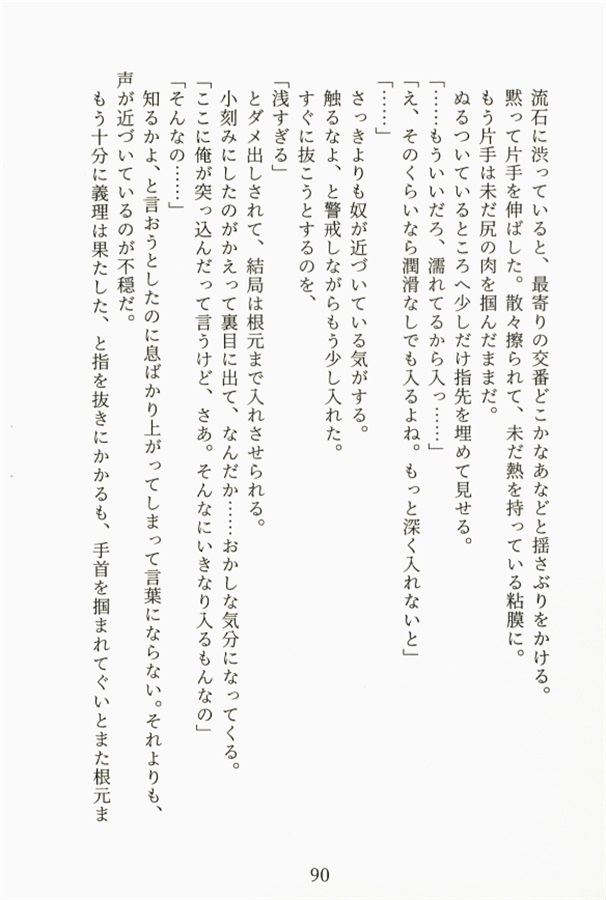 流石に渋っていると、最寄りの交番どこかなあなどと揺さぶりをかける。
黙って片手を伸ばした。散々擦られて、未だ熱を持っている粘膜に。
もう片手は未だ尻の肉を掴んだままだ。
ぬるついているところへ少しだけ指先を埋めて見せる。
「……もういいだろ、濡れてるから入っ……」
「え、そのくらいなら潤滑なしでも入るよね。もっと深く入れないと」
「……」
さっきよりも奴が近づいている気がする。
触るなよ、と警戒しながらもう少し入れた。
すぐに抜こうとするのを、
「浅すぎる」
とダメ出しされて、結局は根元まで入れさせられる。
小刻みにしたのがかえって裏目に出て、なんだか……おかしな気分になってくる。
「ここに俺が突っ込んだって言うけど、さあ。そんなにいきなり入るもんなの」
「そんなの……」
知るかよ、と言おうとしたのに息ばかり上がってしまって言葉にならない。それよりも、
声が近づいているのが不穏だ。
もう十分に義理は果たした、と指を抜きにかかるも、手首を掴まれてぐいとまた根元ま
90